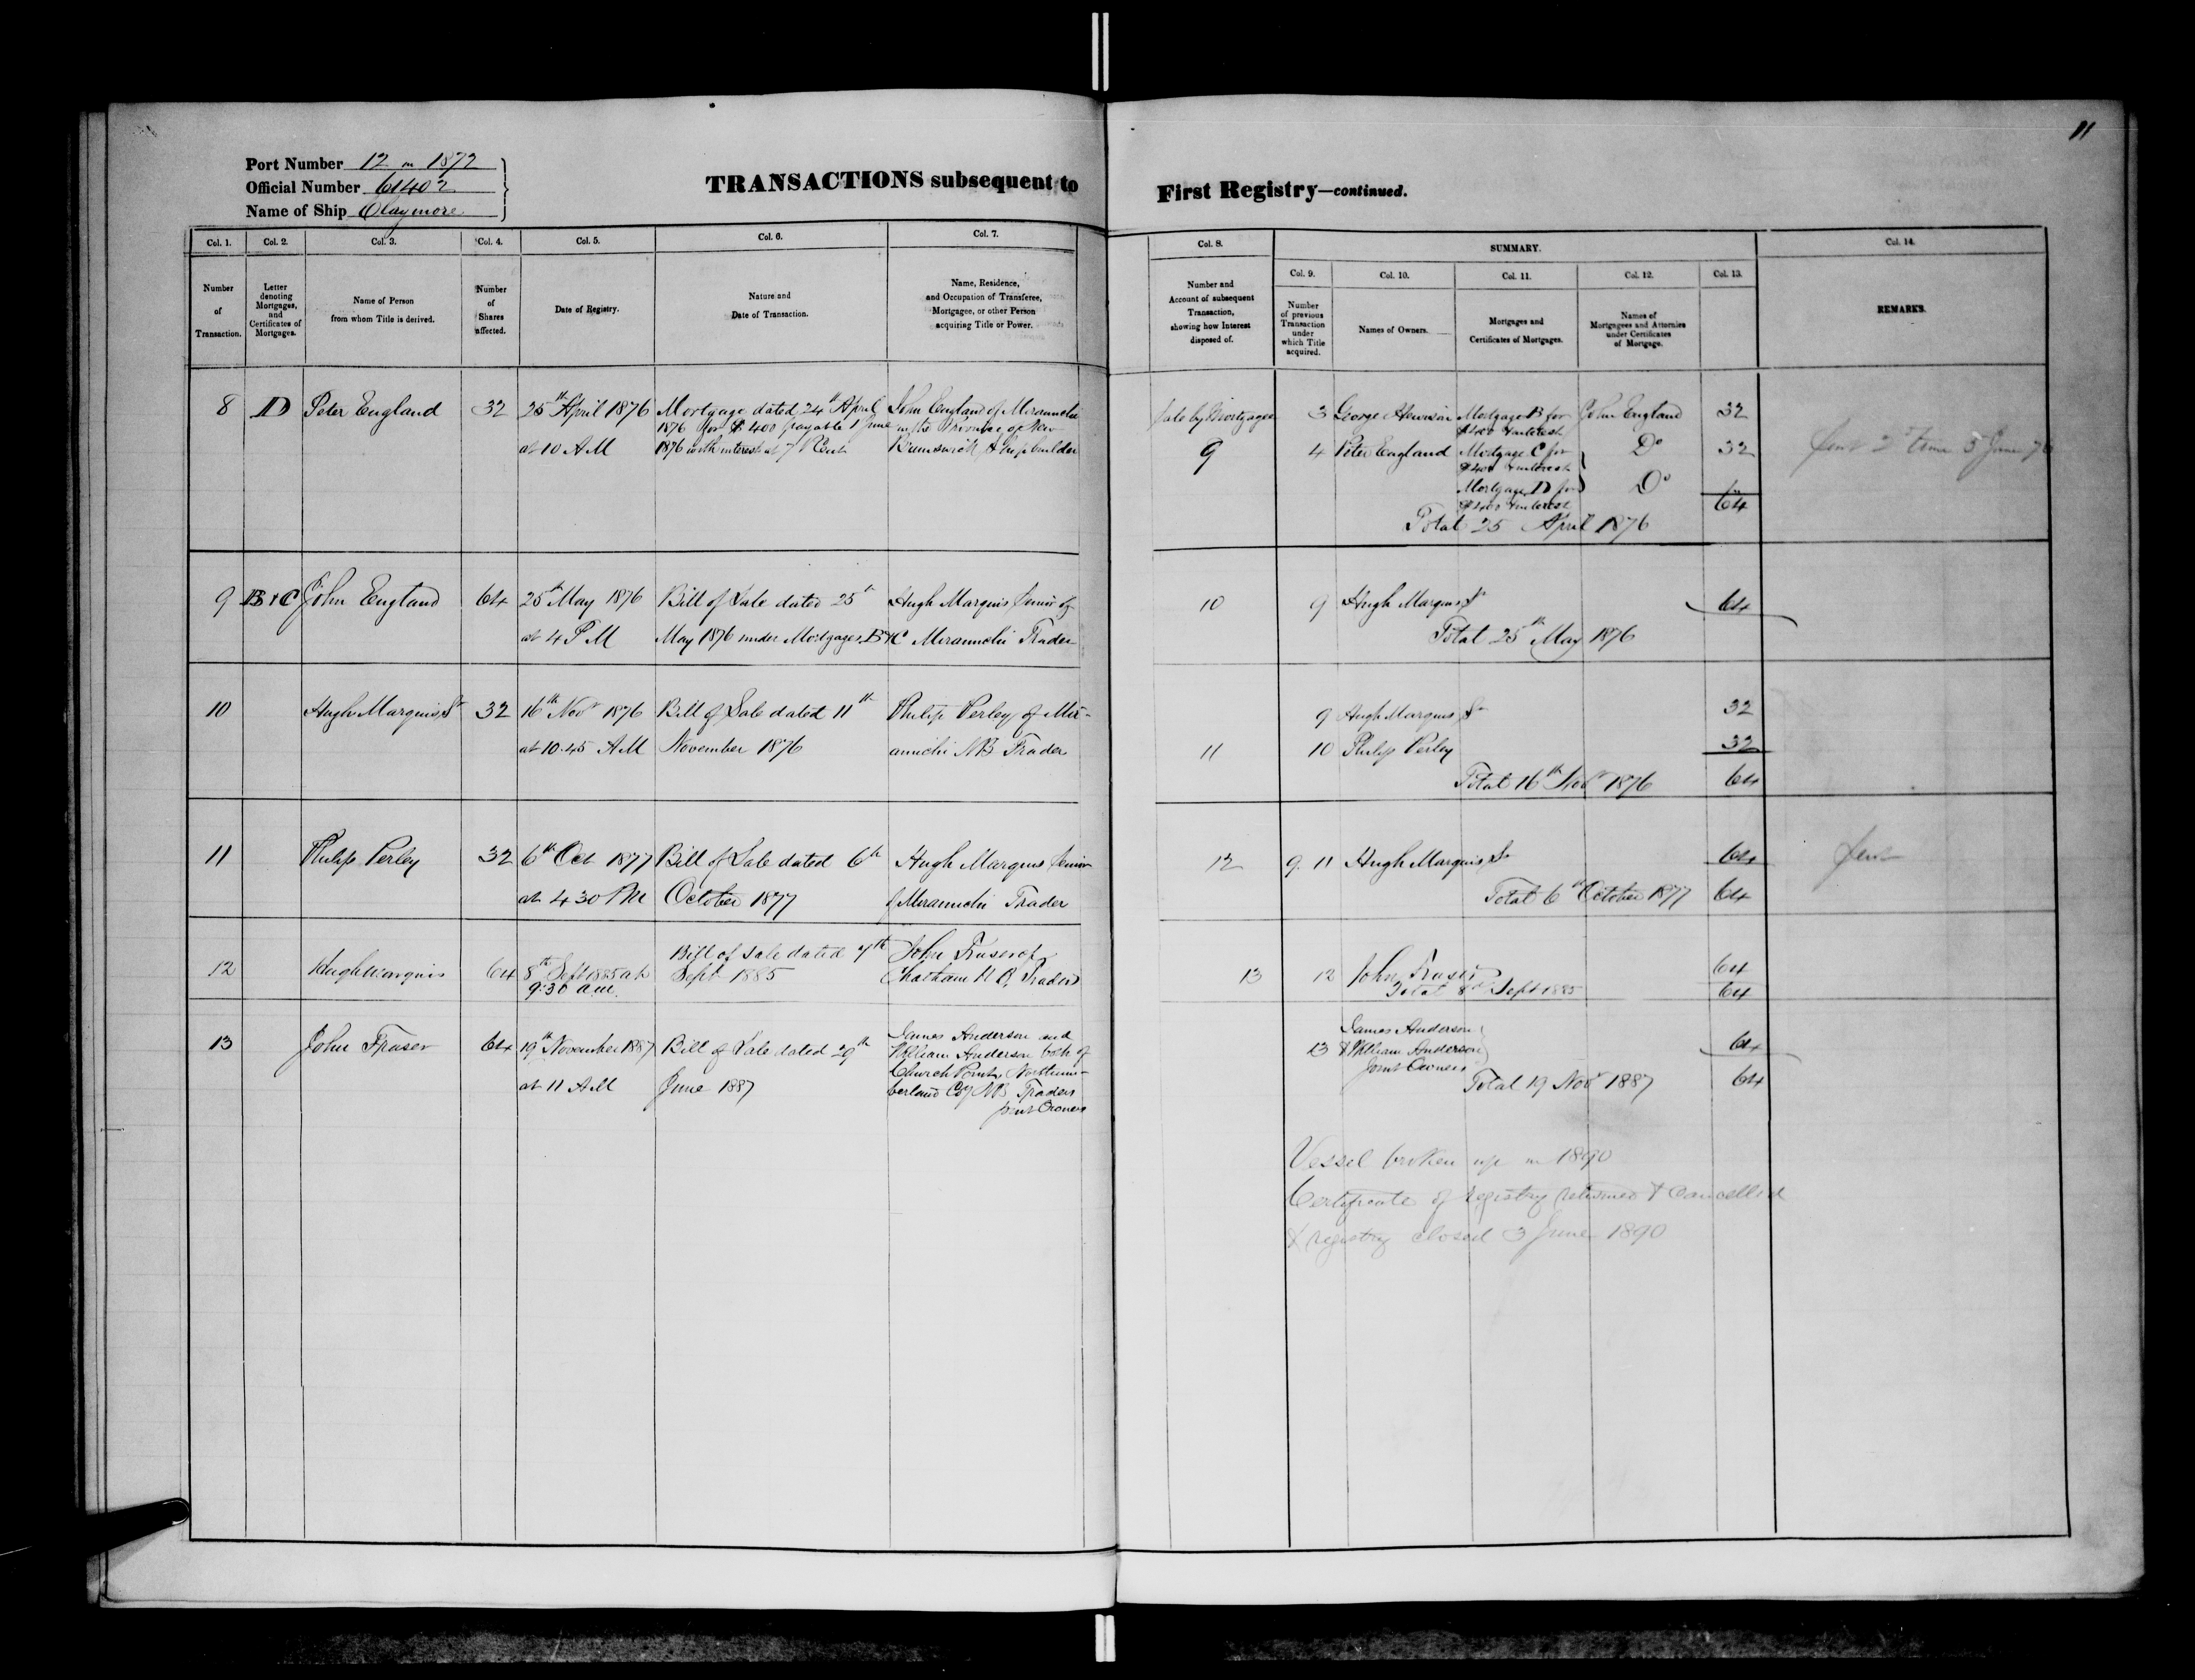 11
Port Number 12 in 1872
Official Number 61402
Name of Ship Claymore
TRANSACTIONS subsequent to First Registry—continued.
Col. 1. Col. 2. Col. 3. Col. 4. Col. 5. Col. 6. Col. 7.
Number of Transaction.
Letter denoting Mortgages, and Certificates of Mortgages.
Name of Person from whom Title is derived.
Number of Shares affected.
Date of Registry.
Nature and Date of Transaction.
Name, Residence, and Occupation of Transferee, Mortgagee, or other Person acquiring Title or Power.
8 D Peter England 32 25th April 1876 Mortgage dated 24th April John England of Miramichi
1876 for $400 payable 1 June in the Province of New
at 10 AM 1876 with interest at 7 P Cent Brunswick Shipbuilder
9 B & C John England 64 25th May 1876 Bill of Sale dated 25th Hugh Marquis Senior of
at 4 PM May 1876 under Mortgages B & C Miramichi Trader
10 Hugh Marquis Sr 32 16th Novr 1876 Bill of Sale dated 11th Philip Perley of Mir-
at 10.45 AM November 1876 amichi NB Trader
11 Philip Perley 32 6th Oct 1877 Bill of Sale dated 6th Hugh Marquis Senior
at 4 30 PM October 1877 of Miramichi Trader
12 Hugh Marquis 64 8th Sept 1885 at Bill of Sale dated 7th John Fraser of
9:30 am. Sept 1885 Chatham N B, Trader
13 John Fraser 64 19th November 1887 Bill of Sale dated 29th James Anderson and
William Anderson both of
Church Point, Northum-
at 11 AM June 1887 berland Cty NB, Traders
Joint Owners
Col. 8. SUMMARY. Col. 14.
Col. 9. Col. 10. Col. 11. Col. 12. Col. 13.
Number and Account of subsequent Transaction, showing how Interest disposed of.
Number of previous Transaction under which Title acquired.
Names of Owners.
Mortgages and Certificates of Mortgages.
Names of Mortgagees and Attornies under Certificates of Mortgage.
REMARKS.
Sale by Mortgagee 3 George Mortgage B for John England 32
$400 & interest
9 4 Peter England Mortgage C for Do 32 Sent 5 June 76
$400 & interest
Mortgage D for Do
$400 & interest 64
Total 25 April 1876
10 9 Hugh Marquis Sr 64
Total 25th May 1876
9 Hugh Marquis Sr 32
11 10 Philip Perley 32
Total 16th Novr 1876 64
12 9. 11 Hugh Marquis Sr 64 Sent
Total 6th October 1877 64
13 12 John Fraser 64
Total 8th Sept 1885 64
James Anderson
13 & William Anderson 64
Joint Owners
Total 19 Novr 1887 64
Vessel broken up in 1890
Certificate of registry returned & cancelled
& registry closed 3 June 1890